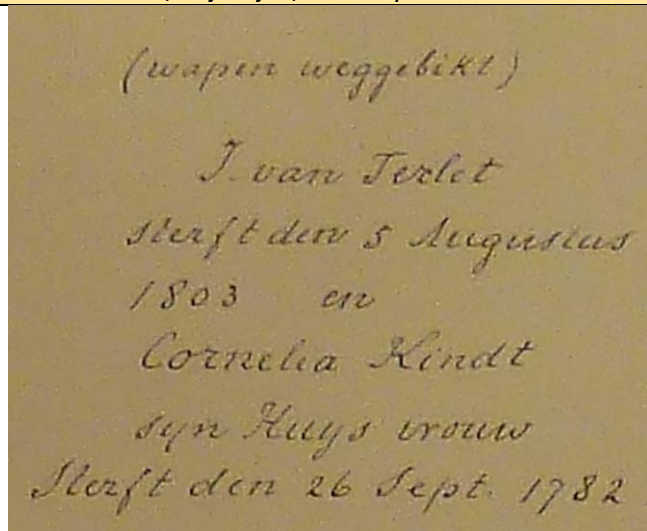 (wapen weggebikt)
J. van Terlet
sterft den 5 Augustus
1803 en
Cornelia Kindt
syn Huys vrouw
Sterft den 26 Sept. 1782